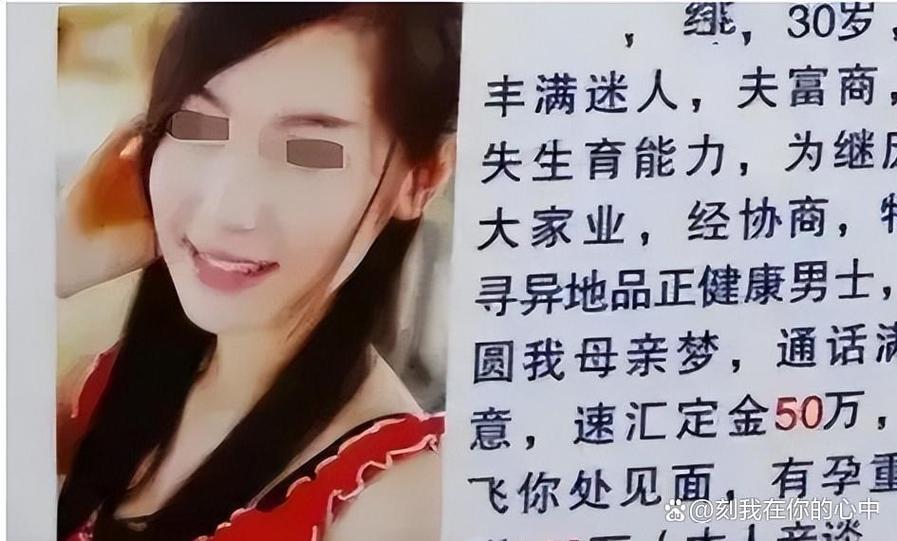 , 30岁,
丰满迷人，夫富商，
失生育能力，为继
大家业，经协商，特
寻异地品正健康男士，
圆我母亲梦，通话满
意，速汇定金50万，
飞你处见面，有孕重
@刻我在你的心中